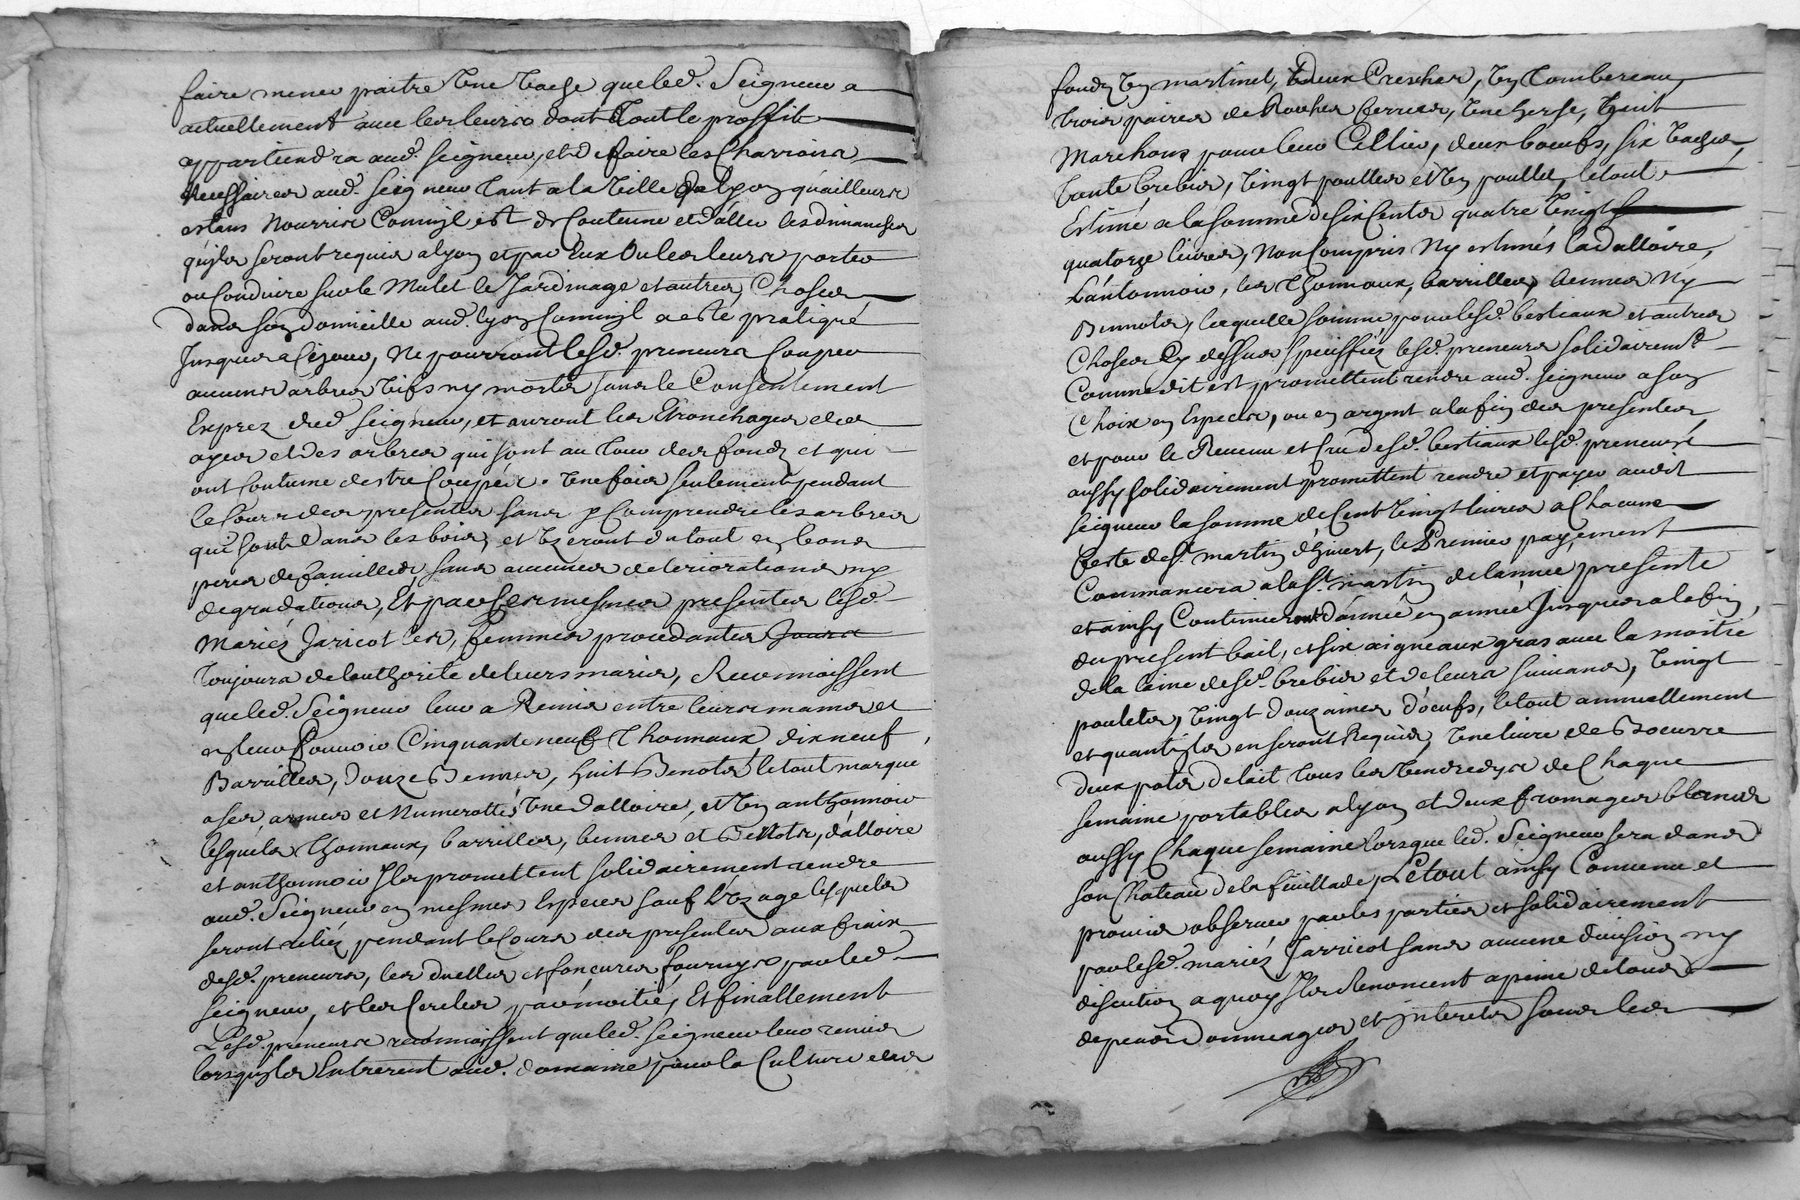 faire mener paitre Une Vache queled. Seigneur a
actuellement avec les leurs dont Tout le proffit
appartiendra aud. seigneur, et de faire les Charrois
Necessaires aud. Seigneur Tant a la Ville de lyon qu'ailleurs
estans Nourris Comm'jl est de Coutume et d'aller les dimanches
qu'jls seront requis a lyon et par Eux Ou les leurs porter
ou Conduire sur le Mulet le Jardinage et autres Choses
dans son domicille aud. lyon Comm'jl a esté pratiqué
Jusques a Cejour, Ne pourront lesd. preneurs Couper
aucuns arbres Vifs ny morts sans le Consentement
Exprez dud. seigneur, et auront les Etronchages des
ayes et des arbres qui sont au Tour des fonds et qui
ont Coutume destre Coupés Une fois seulement pendant
le Cours des presentes sans y Comprendre les arbres
qui sont Dans les bois, et Vzeront du tout en bons
peres de familles sans aucunes deteriorations ny
degradations, Et par Ces mesmes presentes lesd.
Mariés Jaricot les, femmes procedantes
Toujours de l'authorité de leurs maris, Reconnoissent
queled. Seigneur leur a Remis entre leurs mains et
en leur Pouvoir Cinquante neuf Thonnaux, dix neuf
Barrilles, Douze Bennes, huit Benots le tout marqué
a ses armes et Numerottés Une dalloire, et Vn anthonnoir
lesquels Thonnaux, barrilles, bennes et Benots, dalloire
et anthonnoir Jls promettent solidairement rendre
aud. Seigneur en mesmes Especes sauf l'Vzage lesquels
seront reliés pendant le Cours des presentes aux fraix
desd. preneurs, les duelles et fonçures fournys par led.
seigneur, et les Cercles par moitié, Et finallement
Lesd. preneurs reconnoissent queled. seigneur leur remis
lorsqu'jls Entrerent aud. domaine pour la Culture des
fonds Vn martinet, deux Vn Tombereau,
trois paires de Roues ferrées, Une herse, huit
Marchons pour leur Cellier, deux boeufs, six Vaches
Trente brebis, Vingt poulles et Vn poullet, le tout
Estimé a la somme de six Cents quatre Vingt
quatorze livres, Non Compris Ny estimés lad dalloire,
L'antonnoir, les Thonnaux, barrilles, bennes Ny
Bennots, laquelle somme pour lesd. bestiaux et autres
Choses Cy dessus speciffiés lesd. preneurs solidairemt.
Comme dit est promettent rendre aud. seigneur a son
Choix en Especes, ou en argent a la fin des presentes
et pour le Revenu et Cru desd. bestiaux lesd. preneurs
aussy solidairement promettent rendre et payer audit
seigneur la somme de Cent Vingt livres a Chacune
feste de St. martin d'hivert, le Premier payement
Commancera a la St. martin de l'année presente
et ainsy Continuer d'année en année Jusques a la fin
du present bail, et six aigneaux gras avec la moitié
de la laine desd. brebis et de leurs suivans, Vingt
poulets, Vingt douzaines d'oeufs, le tout annuellement
et quant jls en seront Requis, Une livre de Boeurre
deux pots de lait Tous les Vendredys de Chaque
semaine portables a lyon et deux fromages blancs
aussy Chaque semaine lorsque led. Seigneur sera dans
son Chateau de la feuillade, Le tout ainsy Convenu et
promis observer par les parties et solidairement
par lesd. mariés Jarricot sans aucune division ny
discution a quoy Jls Renoncent a peine de tous
depens Dommages et jnterets sous les